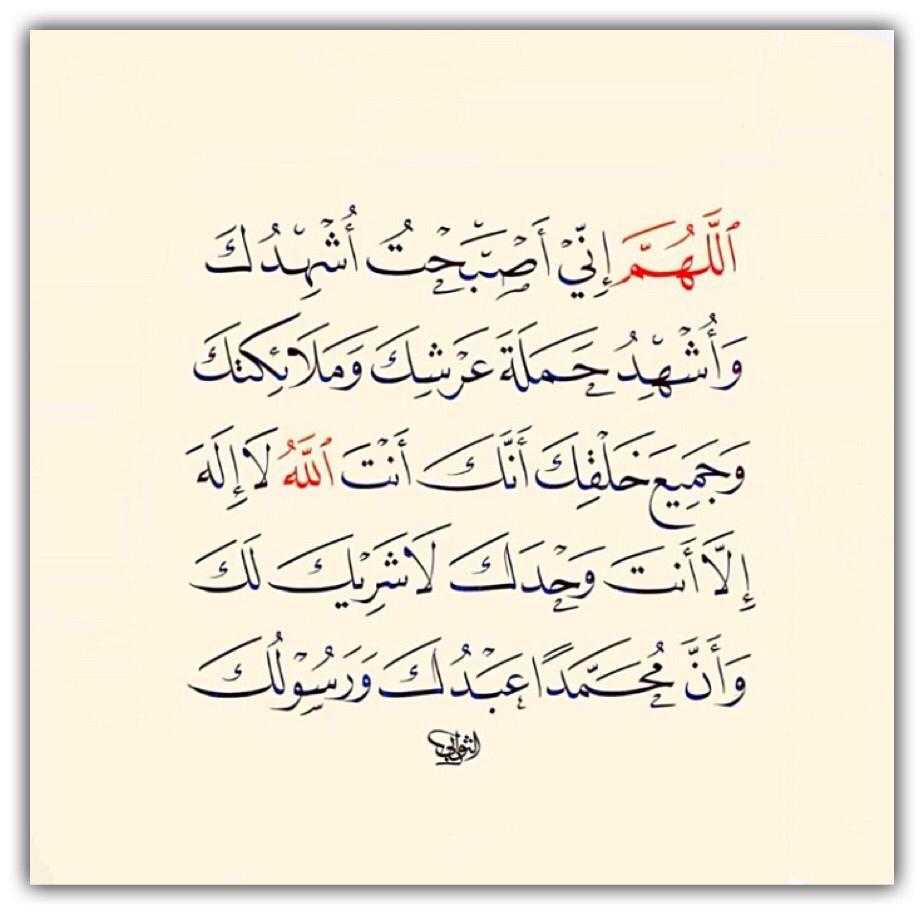 ٱللَّهُمَّ إِنِّيْ أَصْبَحْتُ أُشْهِدُكَ
وَأُشْهِدُ حَمَلَةَ عَرْشِكَ وَمَلَائِكَتَكَ
وَجَمِيعَ خَلْقِكَ أَنَّكَ أَنْتَ ٱللَّهُ لَا إِلَهَ
إِلَّا أَنتَ وَحْدَكَ لَا شَرِيْكَ لَكَ
وَأَنَّ مُحَمَّدًا عَبْدُكَ وَرَسُوْلُكَ